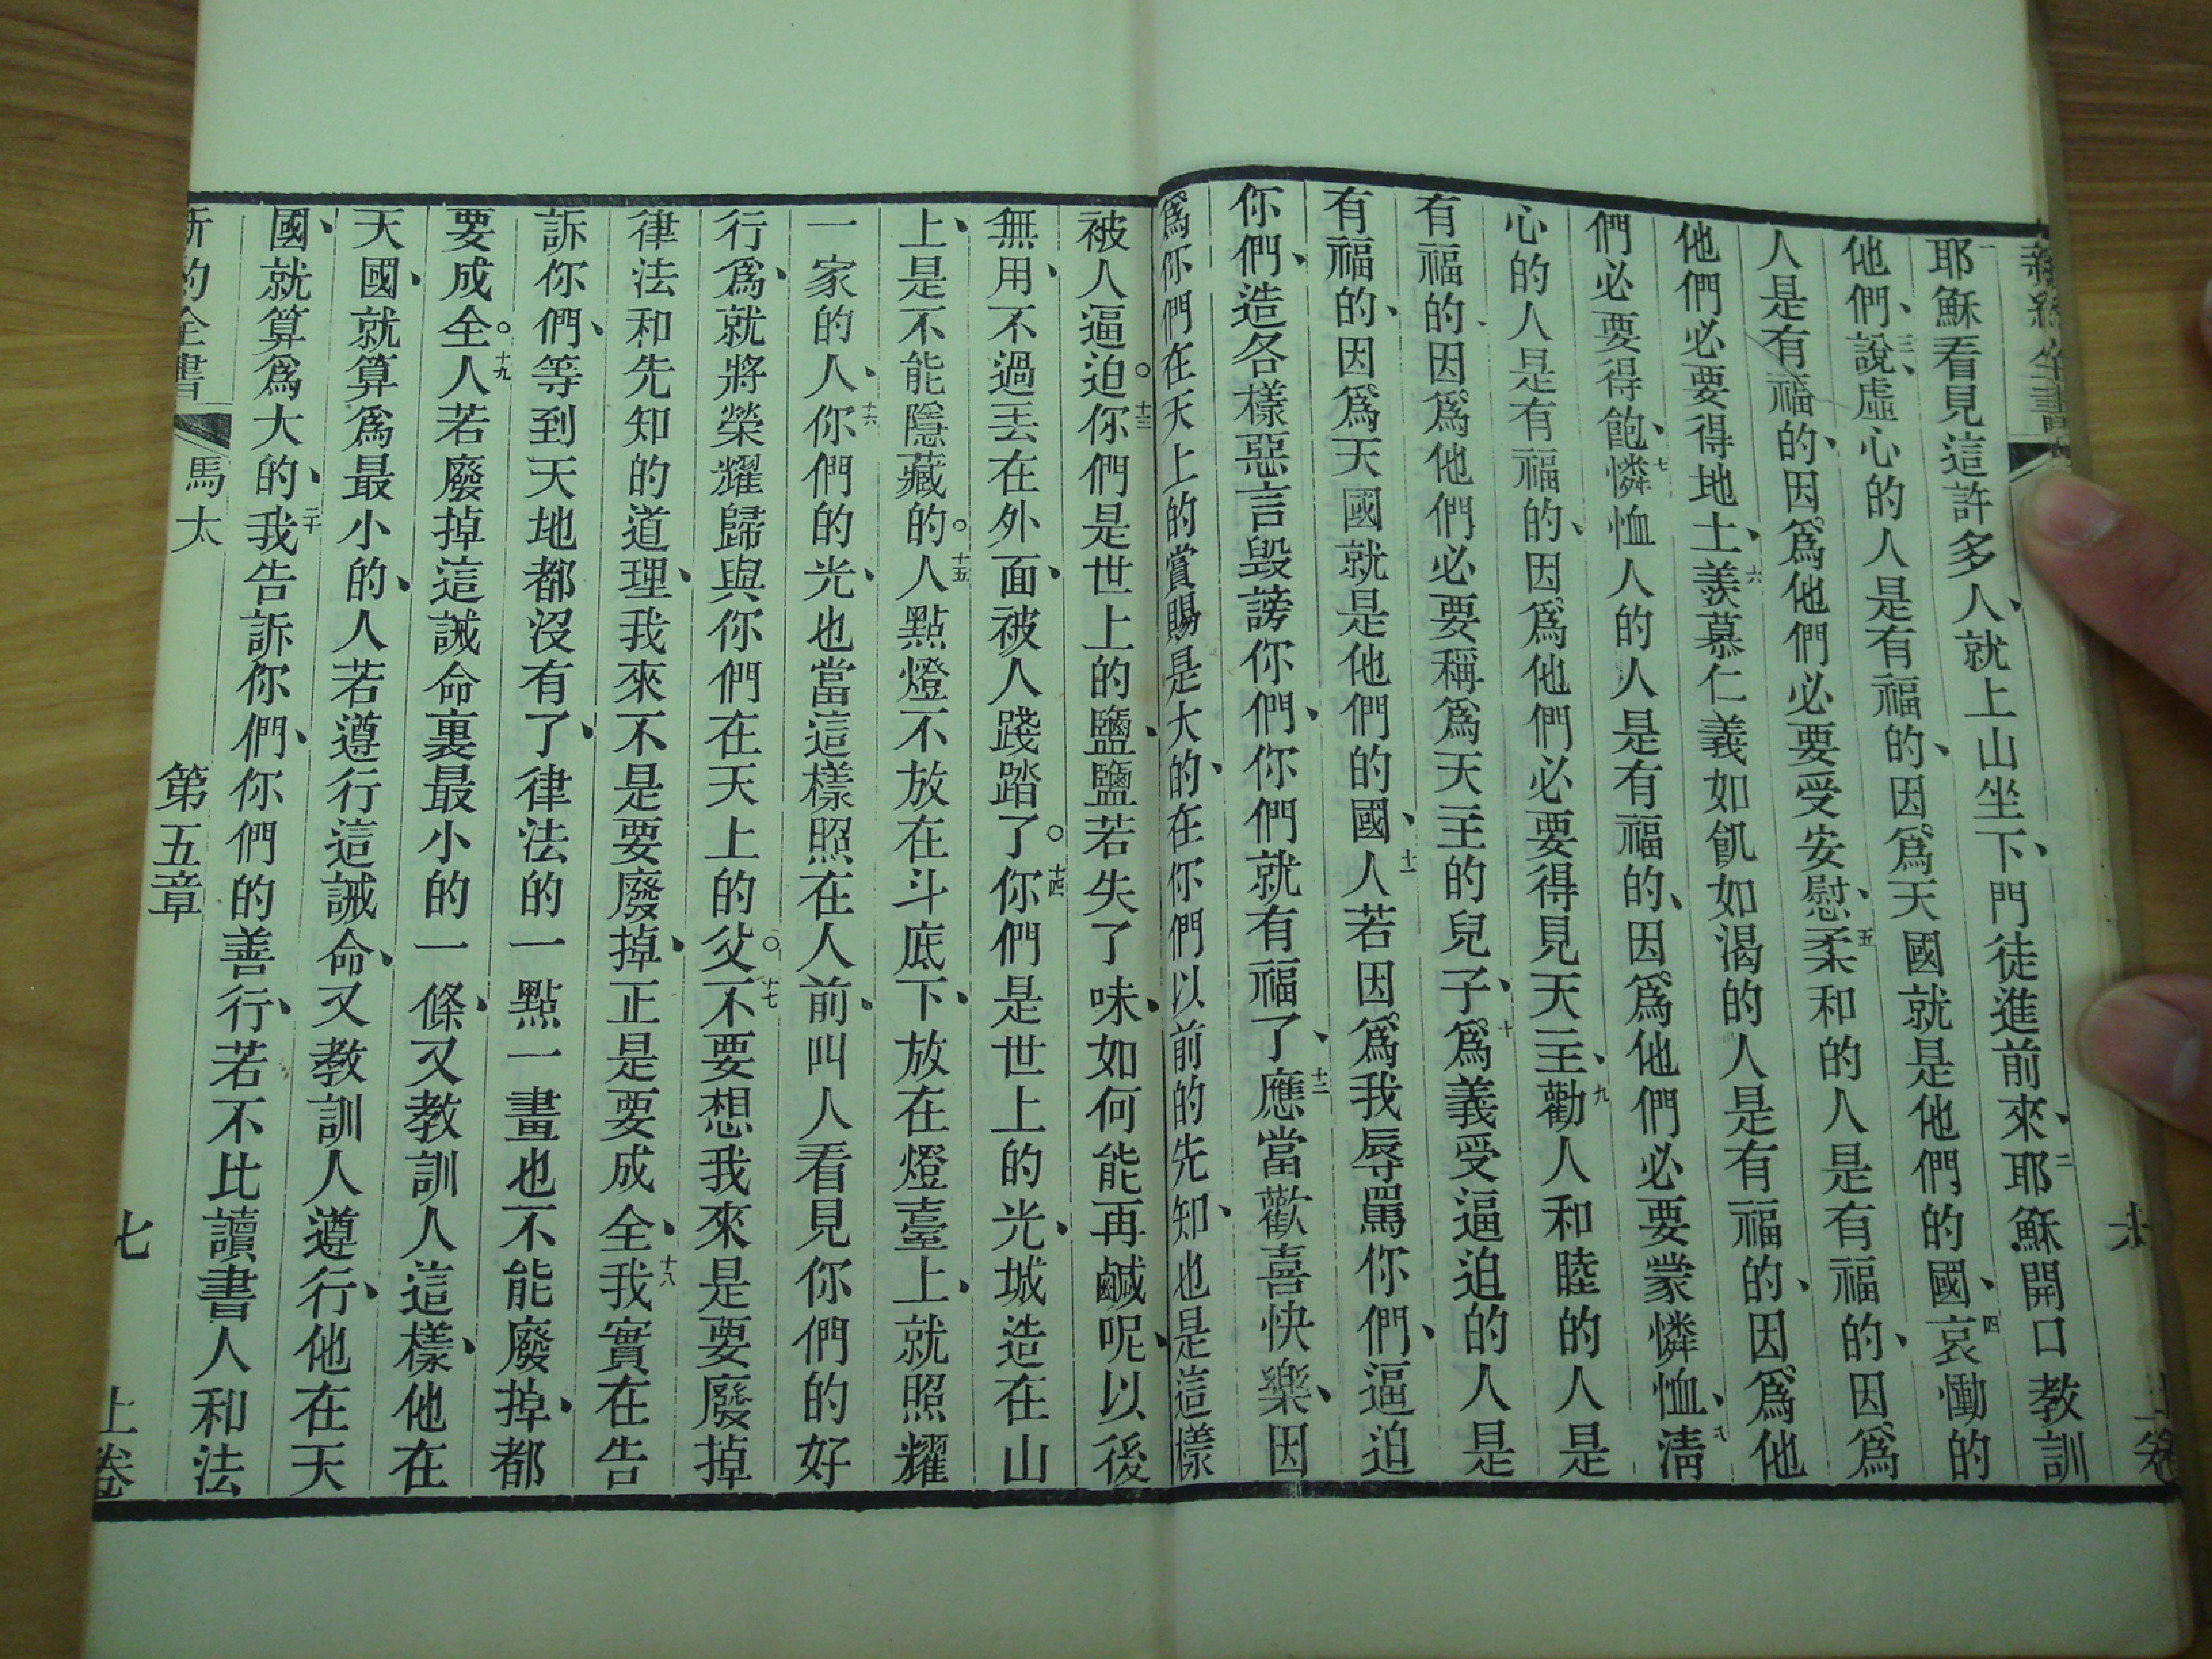 新約全書 上卷
耶穌看見這許多人、就上山坐下、門徒進前來、二耶穌開口教訓
他們、說、三虛心的人是有福的、因爲天國就是他們的國、四哀慟的
人是有福的、因爲他們必要受安慰、五柔和的人是有福的、因爲
他們必要得地土、六羨慕仁義如飢如渴的人是有福的、因爲他
們必要得飽、七憐恤人的人是有福的、因爲他們必要蒙憐恤、八清
心的人是有福的、因爲他們必要得見天主、九勸人和睦的人是
有福的、因爲他們必要稱爲天主的兒子、十爲義受逼迫的人是
有福的、因爲天國就是他們的國、十一人若因爲我辱罵你們、逼迫
你們、造各樣惡言毀謗你們、你們就有福了、十二應當歡喜快樂、因
爲你們在天上的賞賜是大的、在你們以前的先知、也是這樣
被人逼迫。十三你們是世上的鹽、鹽若失了味、如何能再鹹呢、以後
無用、不過丟在外面、被人踐踏了。十四你們是世上的光、城造在山
上、是不能隱藏的。十五人點燈不放在斗底下、放在燈臺上、就照耀
一家的人、十六你們的光、也當這樣照在人前、叫人看見你們的好
行爲、就將榮耀歸與你們在天上的父。十七不要想我來是要廢掉
律法和先知的道理、我來不是要廢掉、正是要成全、十八我實在告
訴你們、等到天地都沒有了、律法的一點一畫也不能廢掉、都
要成全。十九人若廢掉這誡命裏最小的一條、又教訓人這樣、他在
天國、就算爲最小的、人若遵行這誡命、又教訓人遵行、他在天
國、就算爲大的、二十我告訴你們、你們的善行、若不比讀書人和法
新約全書 馬太 第五章 七 上卷